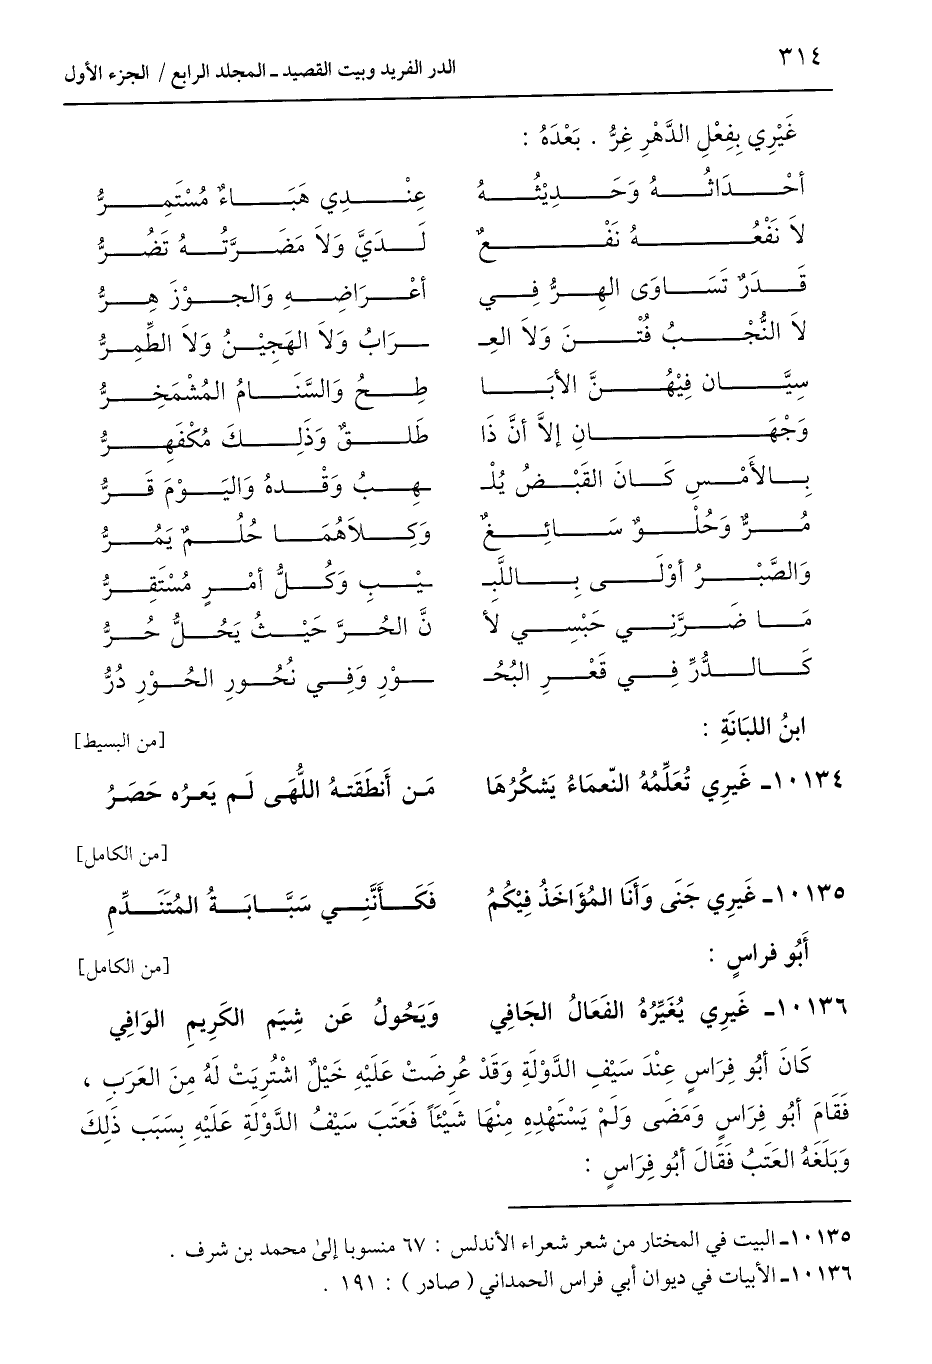 ٣١٤
الدر الفريد وبيت القصيد ـ المجلد الرابع / الجزء الأول
غَيْرِي بِفِعْلِ الدَّهْرِ غِرُّ . بَعْدَهُ :
أحْدَاثُهُ وَحَدِيْثُهُ عِنْدِي هَبَاءٌ مُسْتَمِرُّ
لاَ نَفْعُهُ نَفْعٌ لَدَيَّ وَلاَ مَضَرَّتُهُ تَضُرُّ
قَدَرٌ تَسَاوَى الهِرُّ فِي أعْرَاضِهِ وَالجوْزَ هِرُّ
لاَ النُّجْبُ فُتْنَ وَلاَ العِـ ـرَابُ وَلاَ الهَجِيْنُ وَلاَ الطِّمِرُّ
سِيَّان فِيْهُنَّ الأبَا طِحُ وَالسَّنَامُ المُشْمَخِرُّ
وَجْهَانِ إلاَّ أنَّ ذَا طَلْقٌ وَذَلِكَ مُكْفَهِرُّ
بِالأَمْسِ كَانَ القَبْضُ يُلْـ ـهِبُ وَقْدهُ وَاليَوْمَ قَرُّ
مُرٌّ وَحُلْوٌ سَائِغٌ وَكِلاَهُمَا حُلُمٌ يَمُرُّ
وَالصَّبْرُ أوْلَى بِاللَّبِـ ـيْبِ وَكُلُّ أمْرٍ مُسْتَقِرُّ
مَا ضَرَّنِي حَبْسِي لأ نَّ الحُرَّ حَيْثُ يَحُلُّ حُرُّ
كَالدُّرِّ فِي قَعْرِ البُحُـ ـوْرِ وَفِي نُحُورِ الحُوْرِ دُرُّ
ابنُ اللبَانَةِ :
[من البسيط]
١٠١٣٤ـ غَيرِي تُعَلِّمُهُ النّعمَاءُ يَشكُرُهَا مَن أَنطَقَتهُ اللُّهَى لَم يَعرُه حَصَرُ
[من الكامل]
١٠١٣٥ـ غَيرِي جَنَى وَأنَا المُؤَاخَذُ فِيْكُمُ فَكَأنَّنِي سَبَّابَةُ المُتَنَدِّمِ
أَبُو فراسٍ :
[من الكامل]
١٠١٣٦ـ غَيرِي يُغَيِّرُهُ الفَعَالُ الجَافِي وَيَحُولُ عَن شِيَمِ الكَرِيمِ الوَافِي
كَانَ أبُو فِرَاسٍ عِنْدَ سَيْفِ الدَّوْلَةِ وَقَدْ عُرِضَتْ عَلَيْهِ خَيْلٌ اشْتُرِيَتْ لَهُ مِنَ العَرَبِ ،
فَقَامَ أبُو فِرَاسٍ وَمَضَى وَلَمْ يَسْتَهْدِهِ مِنْهَا شَيْئَاً فَعَتَبَ سَيْفُ الدَّوْلَةِ عَلَيْهِ بِسَبَب ذَلِكَ
وَبَلَغَهُ العَتبُ فَقَالَ أبُو فِرَاسٍ :
١٠١٣٥ـ البيت في المختار من شعر شعراء الأندلس : ٦٧ منسوبا إلىٰ محمد بن شرف .
١٠١٣٦ـ الأبيات في ديوان أبي فراس الحمداني ( صادر ) : ١٩١ .